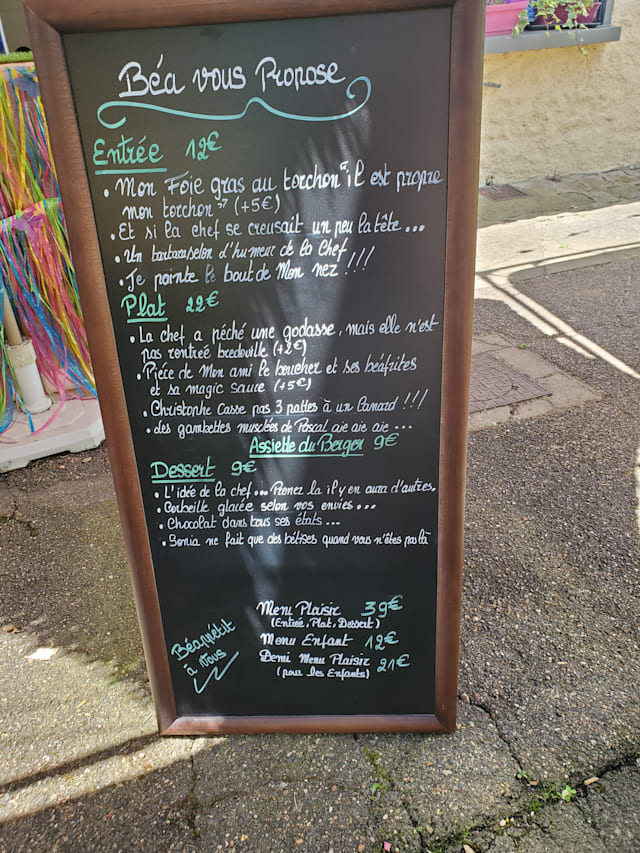 Béa vous Propose
Entrée 12€
• Mon Foie gras au torchon "il est propre
mon torchon" (+5€)
• Et si la chef se creusait un peu la tête...
• Un tartare selon d'humeur de la Chef
• Je pointe le bout de Mon nez !!!
Plat 22€
• La chef a péché une godasse, mais elle n'est
pas rentrée bredouille (+2€)
• Piéce de Mon ami le boucher et ses béafrites
et sa magic sauce (+5€)
• Christophe Casse pas 3 pattes à un Canard !!!
• des gambettes musclées de Pascal aie aie aie ...
Assiette du Berger 9€
Dessert 9€
• L'idée de la chef... Prenez la il y en aura d'autres.
• Corbeille glacée selon vos envies...
• Chocolat dans tous ses états...
• Sonia ne fait que des bétises quand vous n'êtes pas là
Menu Plaisir 39€
(Entrée, Plat, Dessert)
Menu Enfant 12€
Demi Menu Plaisir 21€
(pour les Enfants)
Béappétit
à vous